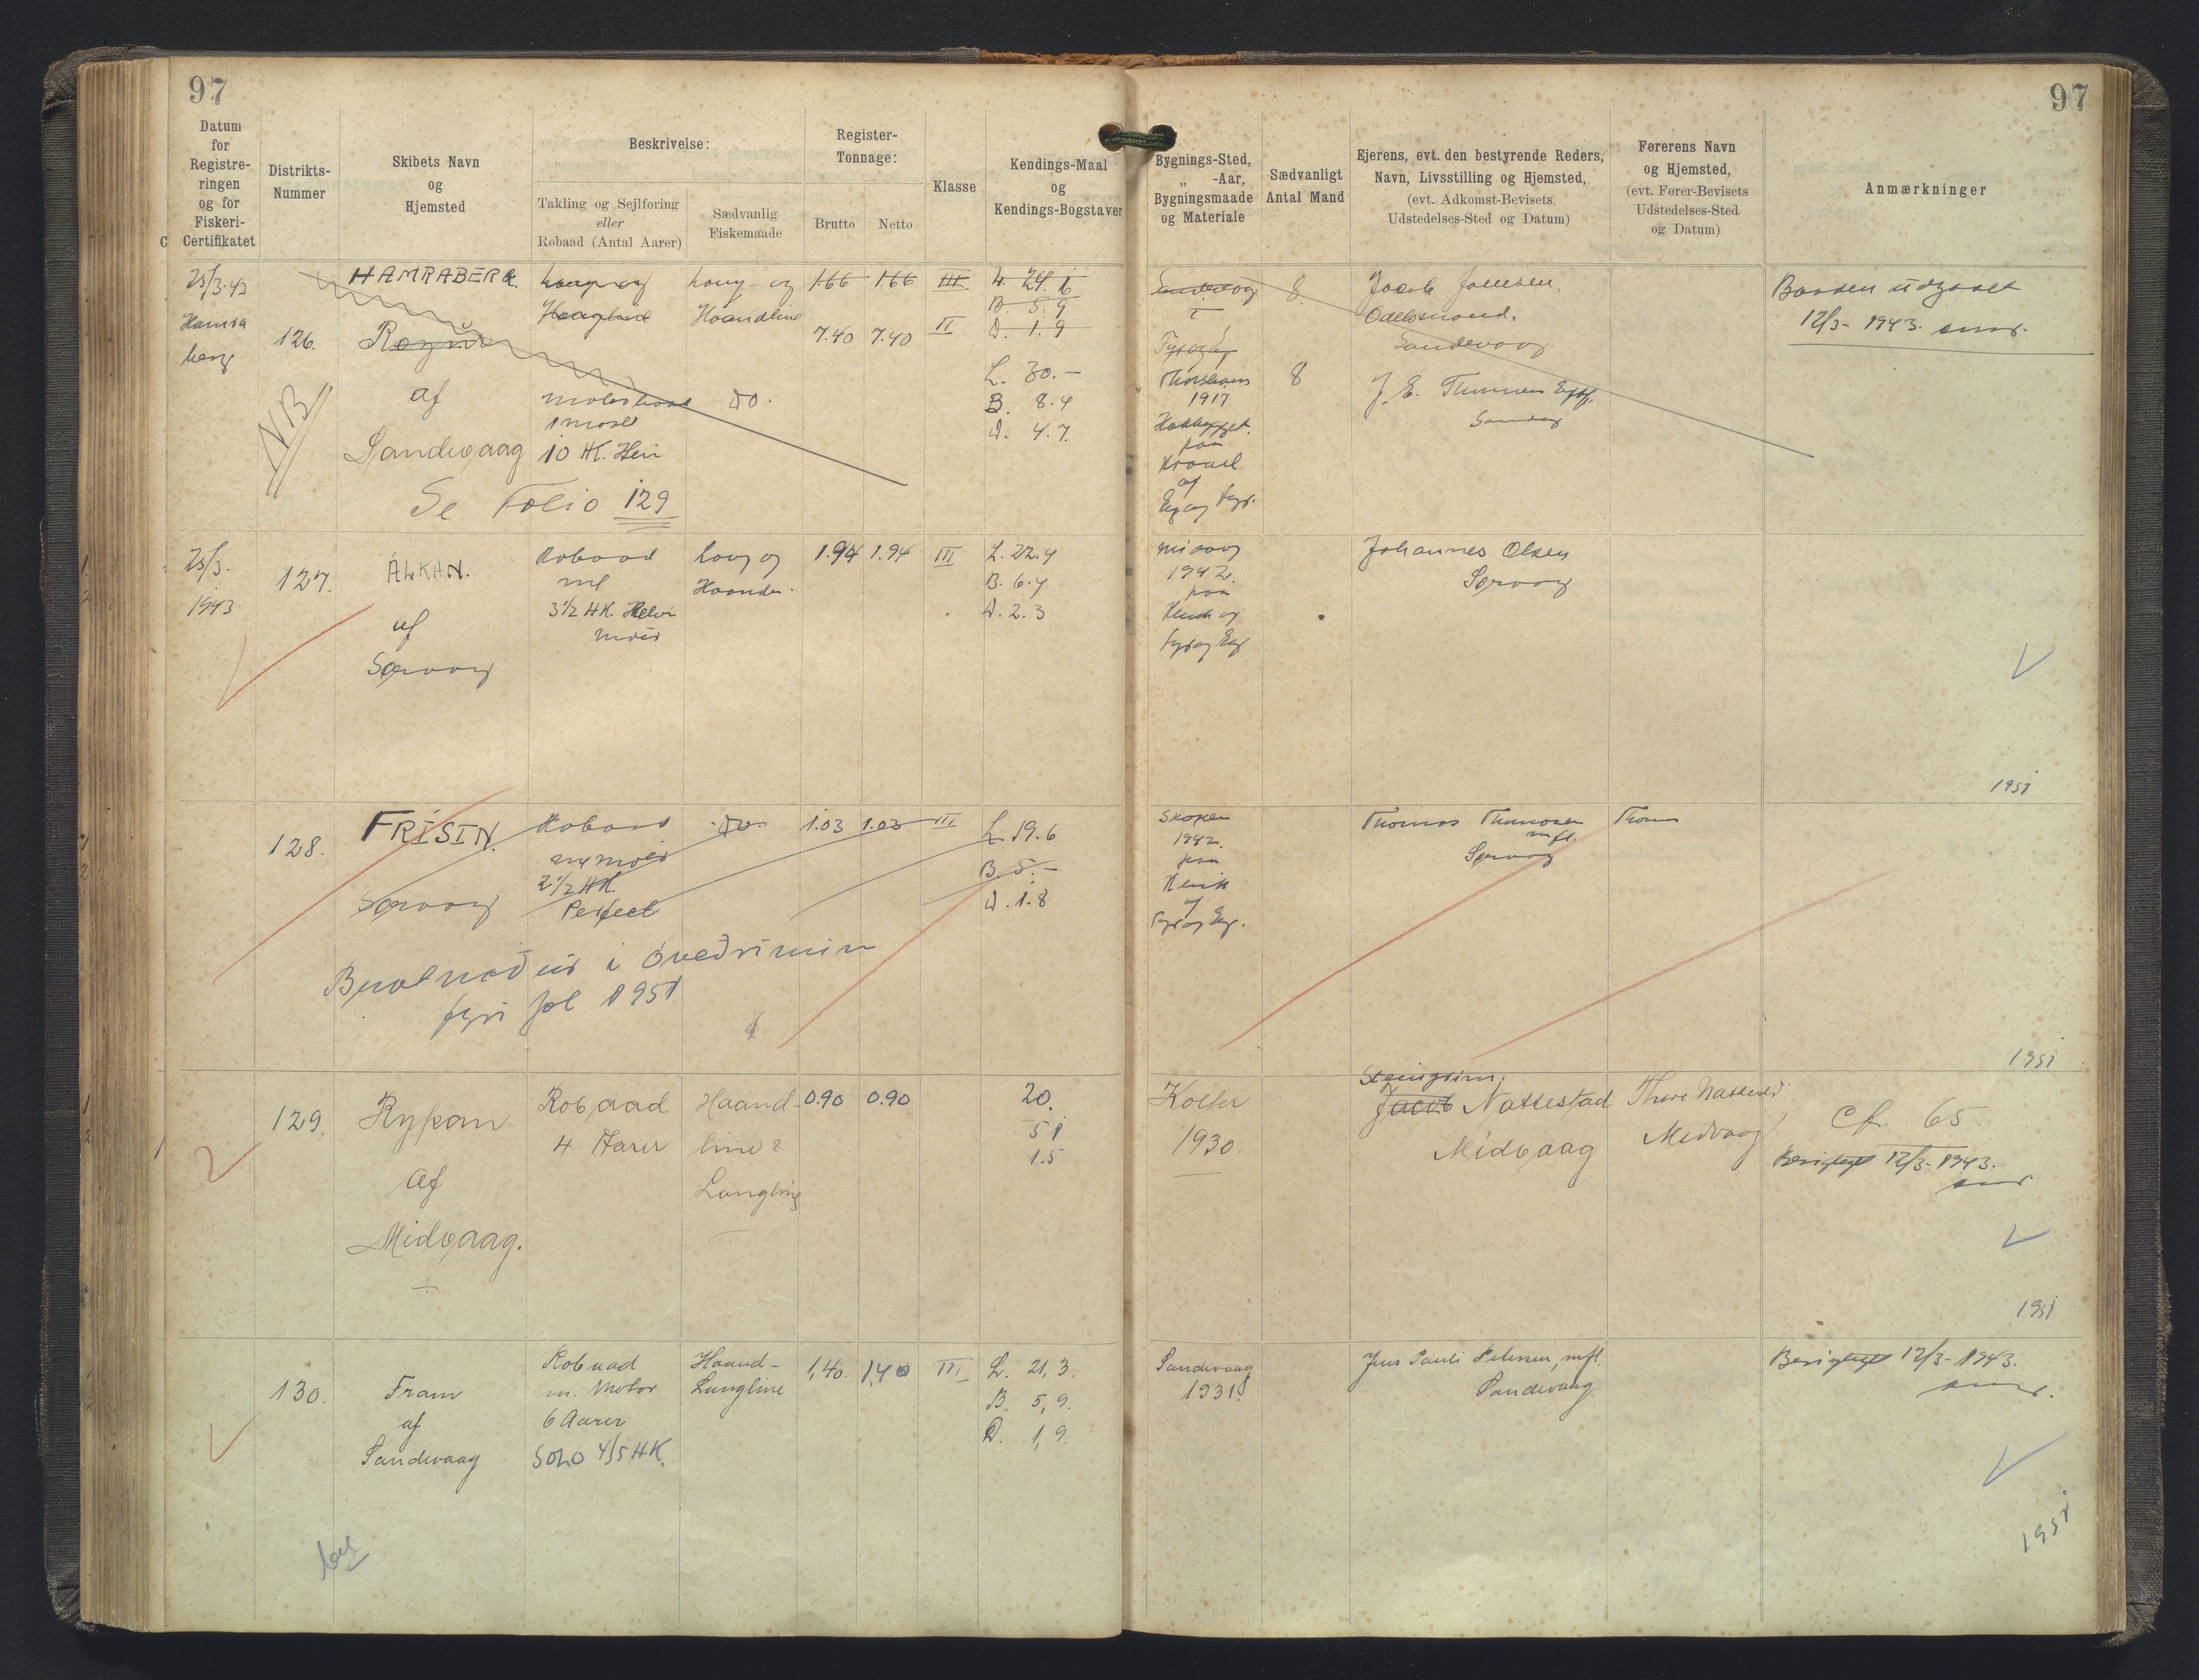 97
97
Datum
for
Registre-
ringen
og for
Fiskeri-
Certifikatet
Distrikts-
Nummer
Skibets Navn
og
Hjemsted
Beskrivelse:
Takling og Sejlføring
eller
Robaad (Antal Aarer)
Sædvanlig
Fiskemaade
Register-
Tonnage:
Brutto
Netto
Klasse
Kendings-Maal
og
Kendings-Bogstaver
Bygnings-Sted,
„ -Aar,
Bygningsmaade
og Materiale
Sædvanligt
Antal Mand
Ejerens, evt. den bestyrende Reders,
Navn, Livsstilling og Hjemsted,
(evt. Adkomst-Bevisets
Udstedelses-Sted og Datum)
Førerens Navn
og Hjemsted,
(evt. Fører-Bevisets
Udstedelses-Sted
og Datum)
Anmærkninger
25/3.43
126.
NB
HAMRABERG.
af
Sandevaag
Se Folio 129
Motorbaad
1 mast
10 HK. Hein
Lang- og
Haandline
do.
1.66 1.66 III
7.40 7.40 II
L. 24.6
B. 5.9
D. 1.9
L. 30.-
B. 8.4
D. 4.7.
Sandevaag
Thorshavn
1917
paa
Kravel
af
Eg og Fyr.
8.
8
Jacob Joensen,
Odelsmand.
Sandevaag
J. E. Thomsen Eftf.
Sandvag
Baaden udgaaet
12/3- 1943.
25/3.
1943
127.
ÁLKAN.
af
Sørvaag
Robaad
m/
3 1/2 HK. Kelvin
motor
Lang og
Haandl.
1.94 1.94 III
L. 22.4
B. 6.4
D. 2.3
Midvaag
1942.
paa
Klink og
Fyr og Eg
Johannes Olsen
Sørvaag
1951
128.
FRÍSIN.
Sørvaag
Robaad
m/motor
2 1/2 HK.
Perfect
do.
1.03 1.03 III
L. 19.6
B. 5.-
D. 1.8
Brotnaður i óveðrinum
fyri jol 1951
Skopen
1942.
paa
Klink
af
Fyr og Eg.
Thomas Thomsen
mfl.
Sørvaag
Thomas
1951
129.
Rypan
af
Midvaag.
Robaad
4 Aarer
Haand-
line &
Langline
0.90 0.90
20.
5.1
1.5
Kolter
1930.
Steingrim.
Jacob Nattestad
Midvaag
Thore Nattestad
Midvaag
Cf. 65.
Berigtiget 12/3- 1943.
1951
130.
Fram
af
Sandevaag
Robaad
m. Motor
6 Aarer
Solo 4/5 HK.
Haand-
Langline
1,40. 1,40 III
L. 21,3.
B. 5,9.
D. 1,9.
Sandevaag
1931.
Jens Pauli Petersen, mfl.
Sandevaag
Berigtiget 12/3- 1943.
1951